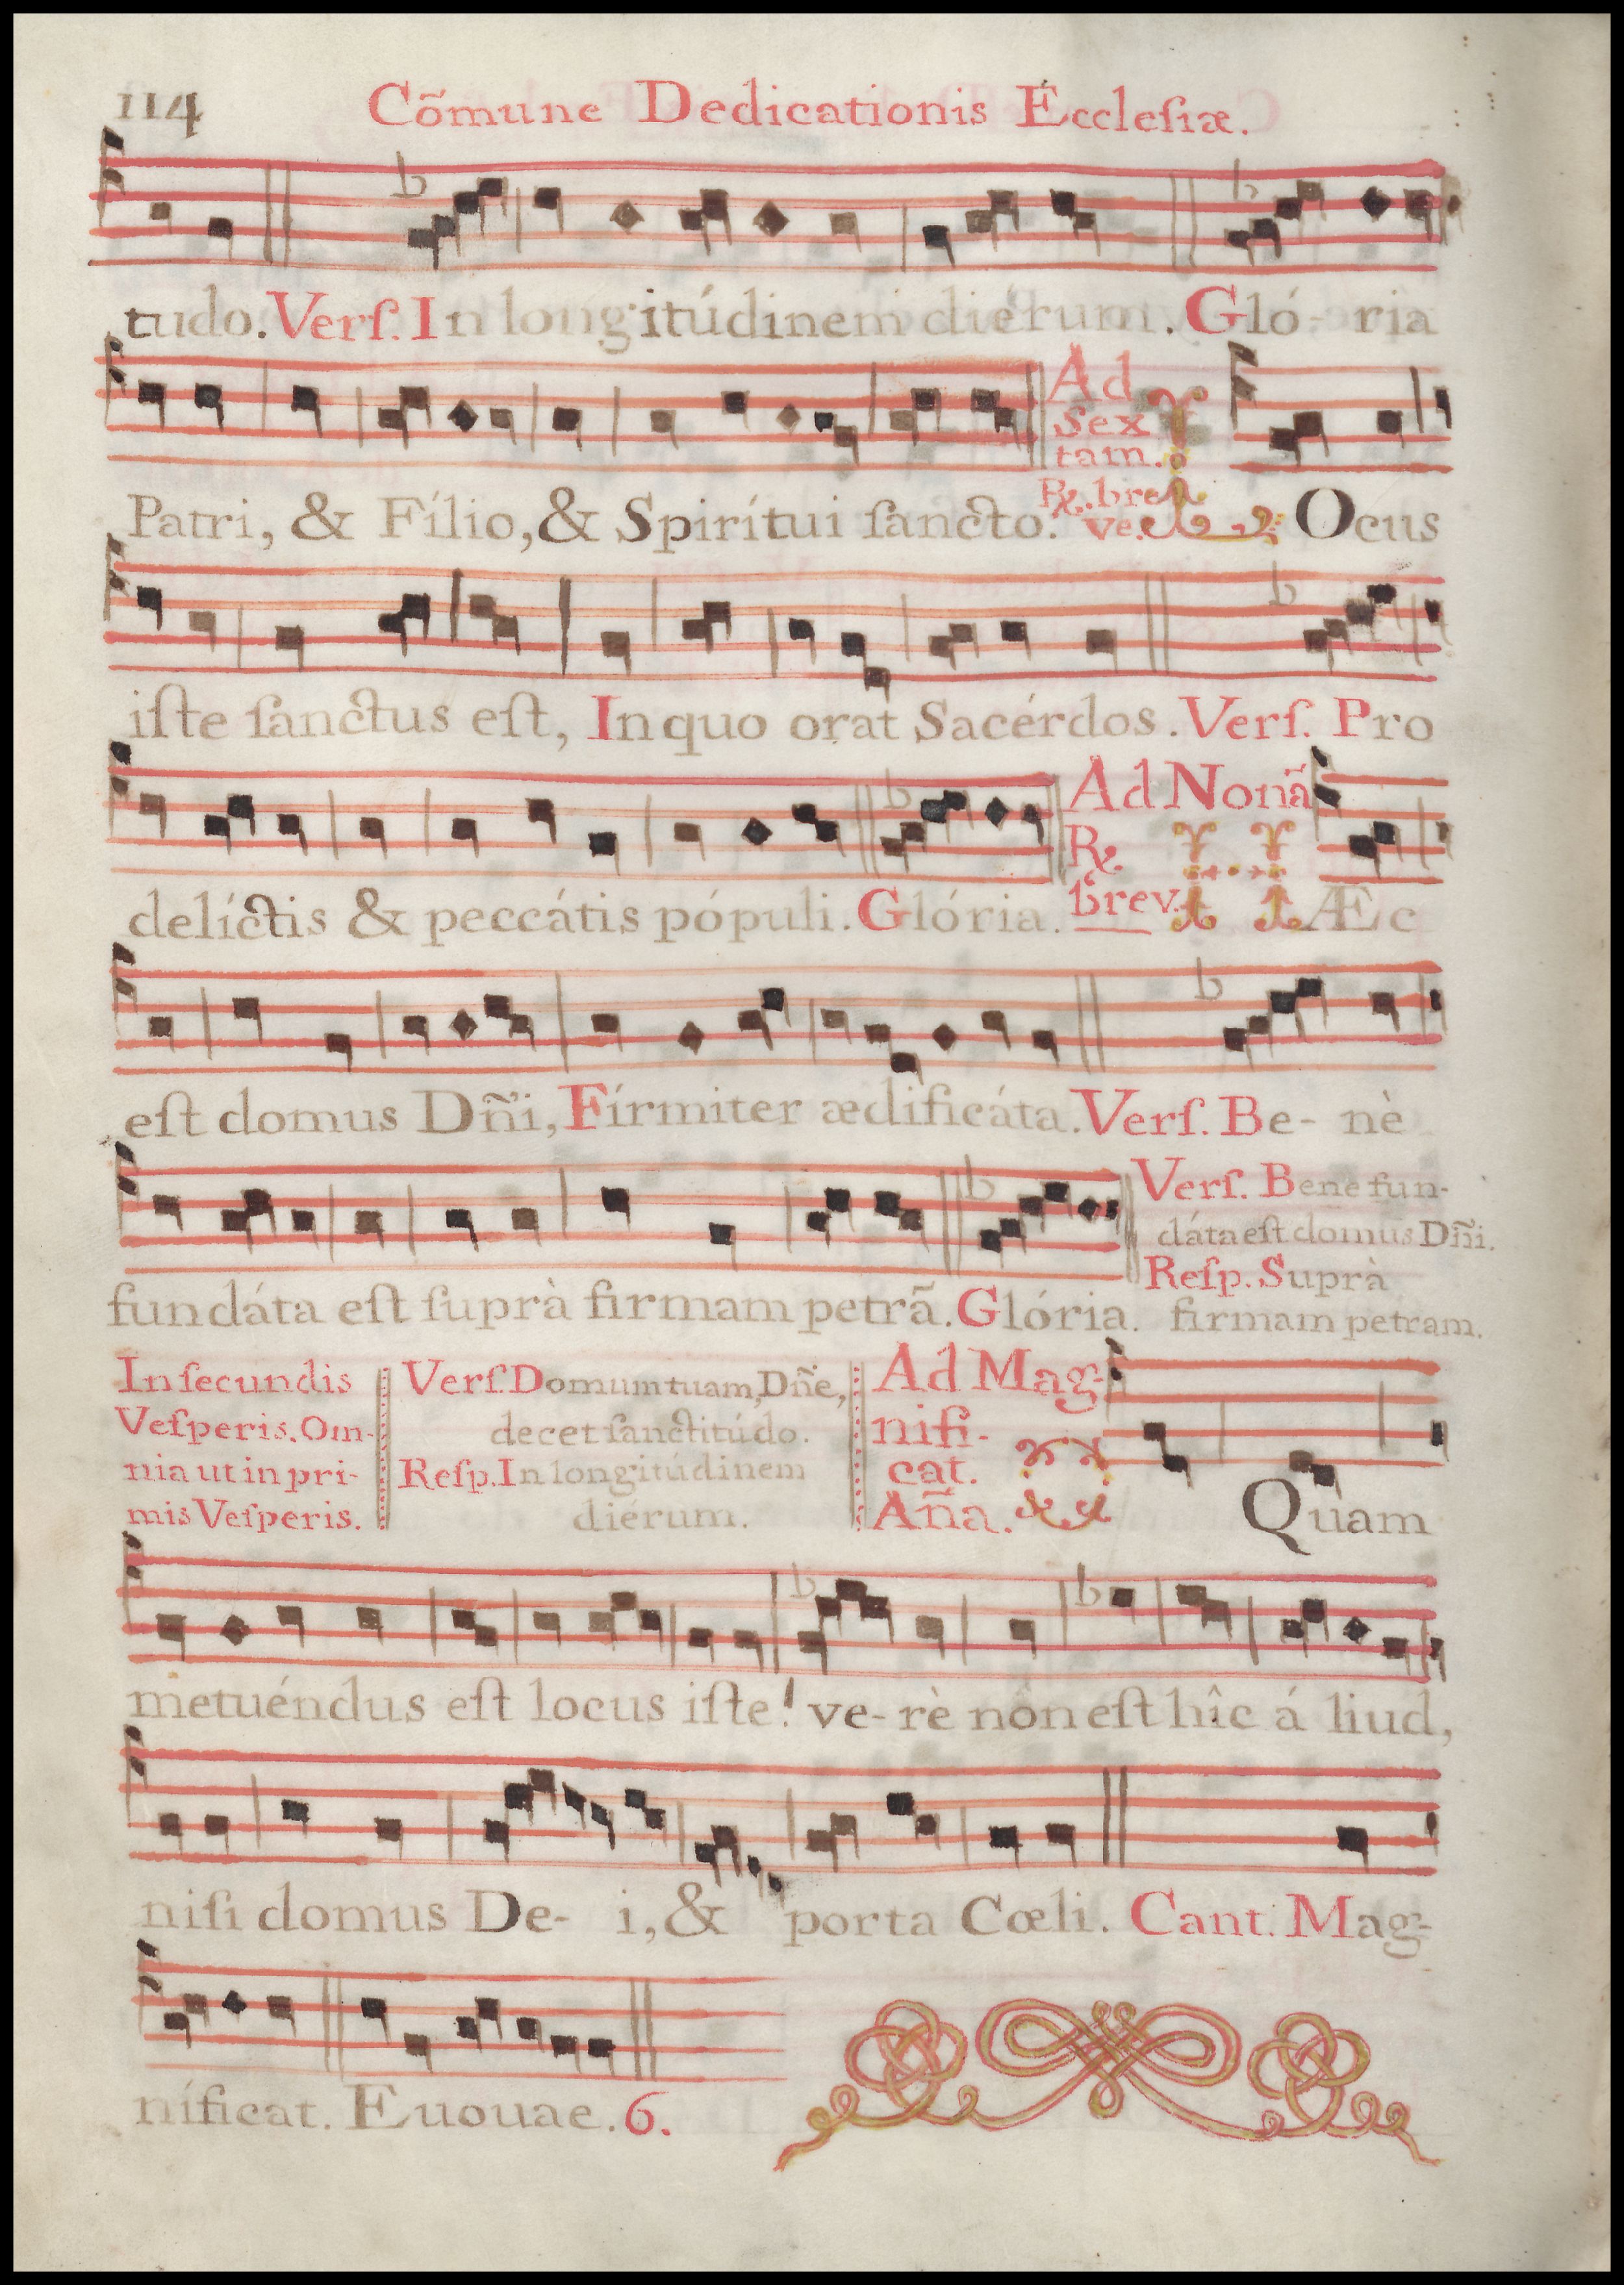 114 Cõmune Dedicationis Ecclesiæ.
tudo. Verſ. In longitúdinem diérum. Gló- ria
Patri, & Fílio, & Spirítui ſancto.
Ad
Sex
tam.
℞. bre
ve.
L Ocus
iſte ſanctus eſt, In quo orat Sacérdos. Verſ. Pro
delíctis & peccátis pópuli. Glória.
Ad Nonã
℞
brev.
H Æc
eſt domus Dñi, Fírmiter ædificáta. Verſ. Be- nè
fundáta eſt ſuprà firmam petrã. Glória.
Verſ. Bene fun-
dáta eſt domus Dñi.
Reſp. Suprà
firmam petram.
In ſecundis
Veſperis. Om-
nia ut in pri-
mis Veſperis.
Verſ. Domum tuam, Dñe,
decet ſanctitúdo.
Reſp. In longitúdinem
diérum.
Ad Mag-
nifi-
cat.
Aña.
O Quam
metuéndus eſt locus iſte! ve- rè nôn eſt hîc á liud,
niſi domus De- i, & porta Cœli. Cant. Mag-
níficat. Euouae. 6.